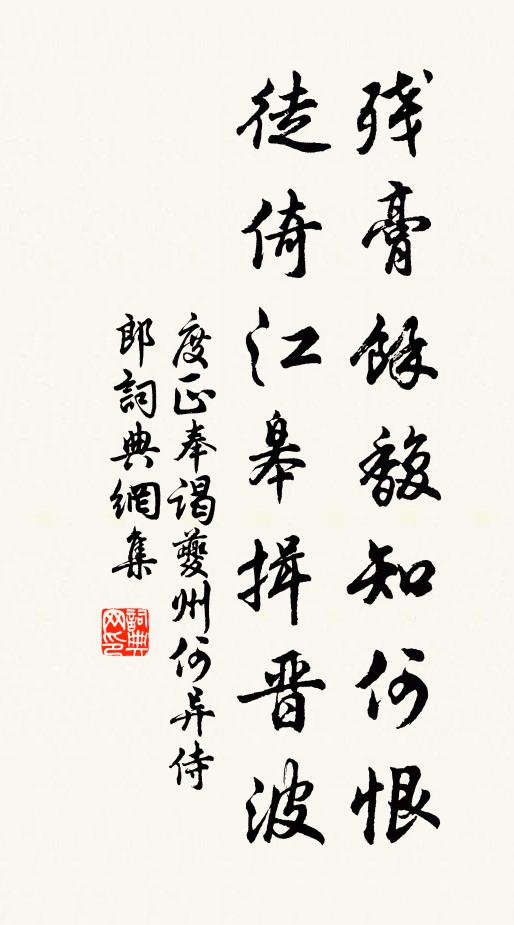 残膏餘馥知何恨
徒倚江皋揖晋波
度正奉謁夔州何异侍
郎詞典網集
詞典网印